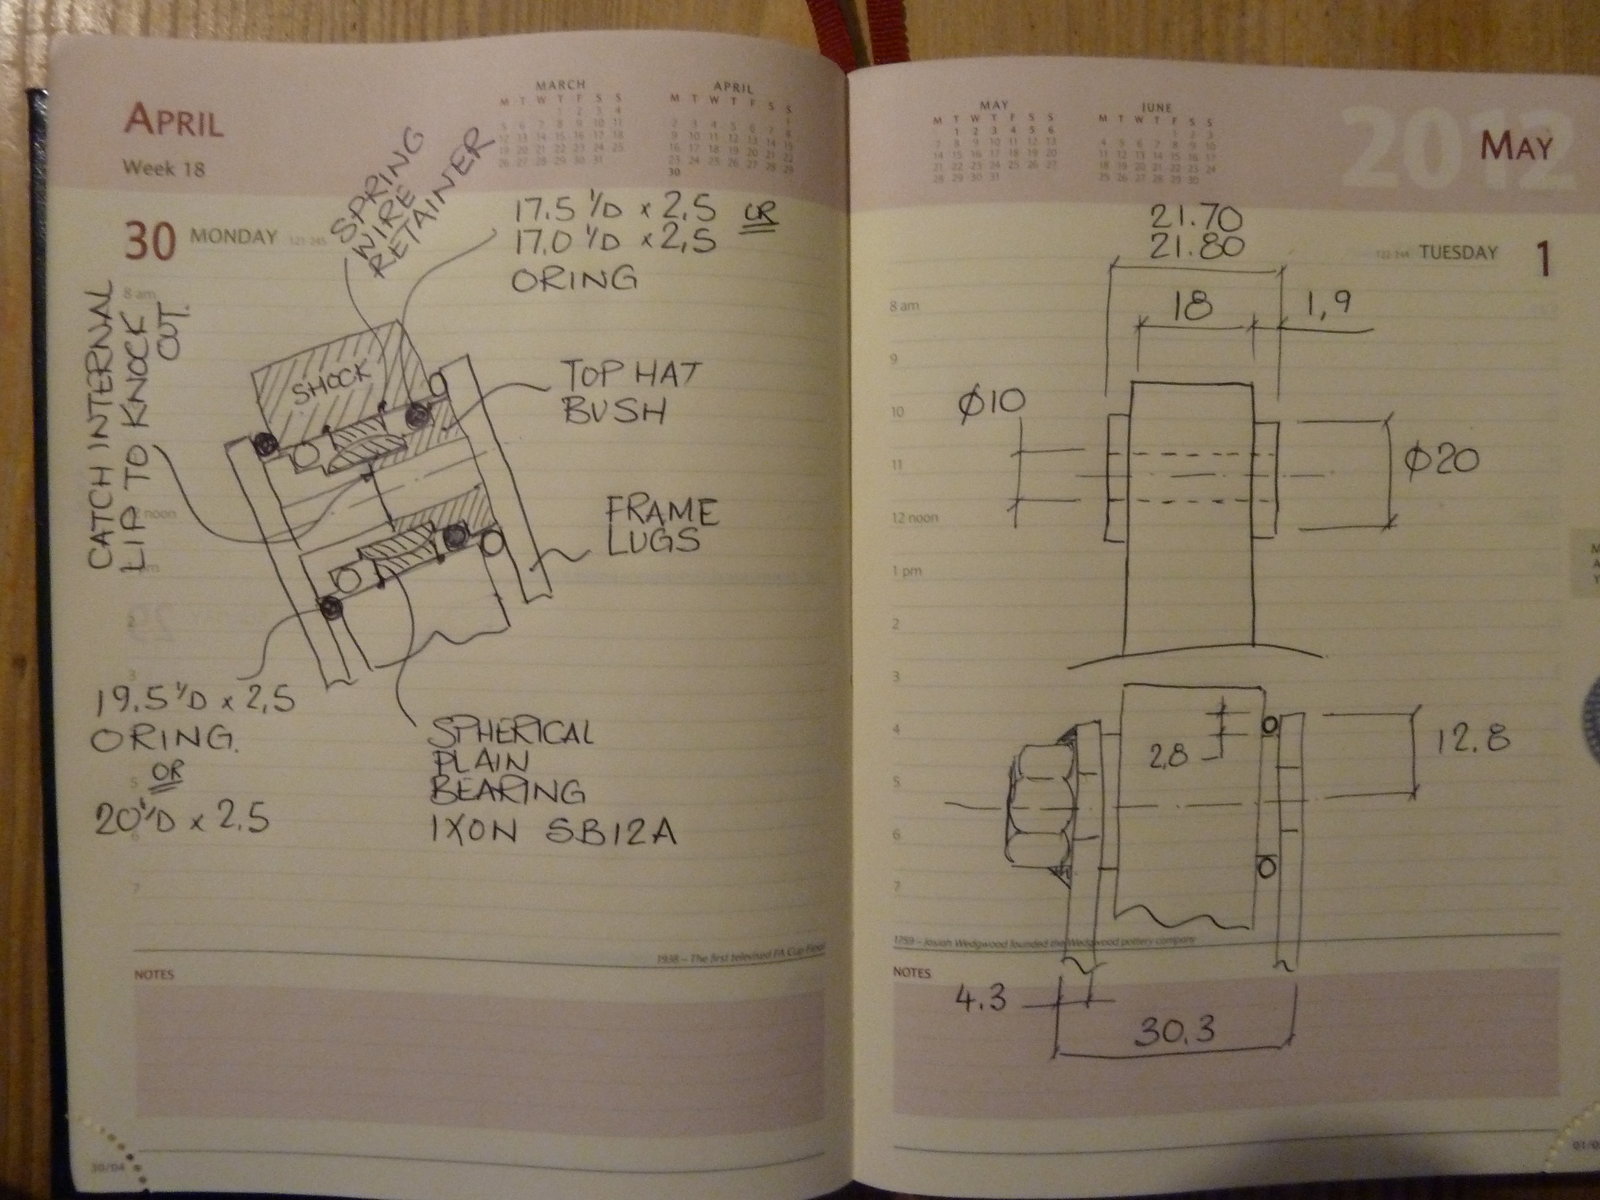 APRIL
Week 18
MARCH
M T W T F S S
APRIL
M T W T F S S
30 MONDAY
SPRING
WIRE
RETAINER
17.5 I/D x 2.5 OR
17.0 I/D x 2,5
ORING
CATCH INTERNAL
LIP TO KNOCK
OUT.
8 am
SHOCK
TOP HAT
BUSH
noon
FRAME
LUGS
19.5 I/D x 2,5
ORING.
OR
20 I/D x 2.5
SPHERICAL
PLAIN
BEARING
IXON SB12A
7
1938 – The first televised FA Cup Final
NOTES
30/04
MAY
M T W T F S S
JUNE
M T W T F S S
2012
MAY
TUESDAY 1
21.70
21.80
18
1,9
8 am
9
10
11
12 noon
1 pm
2
3
4
5
6
7
Ø10
Ø20
2,8
12.8
1759 – Josiah Wedgwood founded the Wedgwood pottery company
NOTES
4.3
30.3